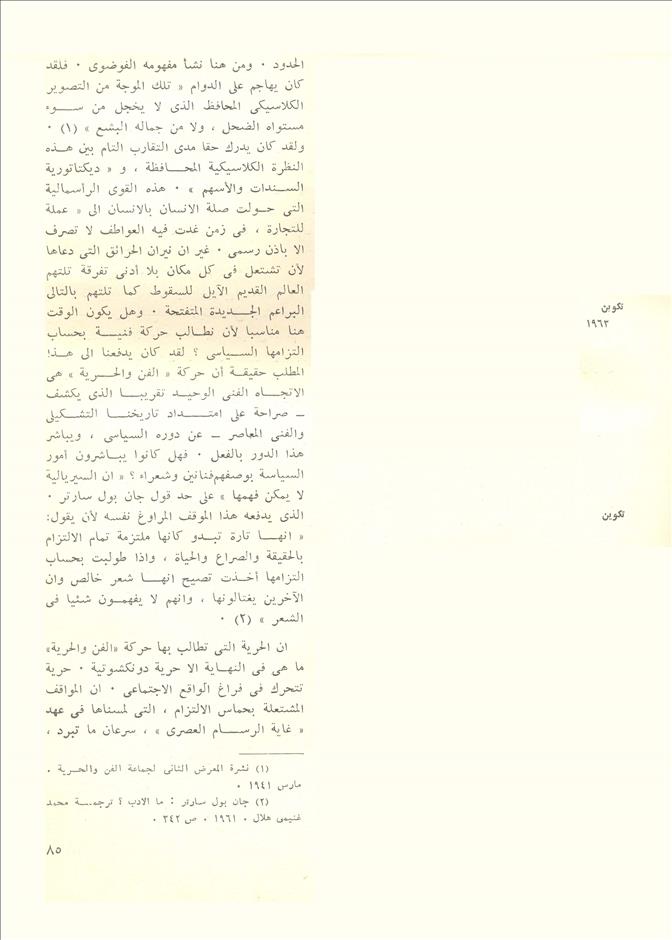 الحدود ٠ ومن هنا نشأ مفهومه الفوضوى ٠ فلقد
كان يهاجم على الدوام « تلك الموجة من التصوير
الكلاسيكى المحافظ الذى لا يخجل من ســوء
مستواه الضحل ، ولا من جماله البشع » (١) ٠
ولقد كان يدرك حقا مدى التقارب التام بين هــذه
النظرة الكلاسيكية المحــافظة ، و « ديكتاتورية
الســندات والأسهم » ٠ هذه القوى الرأسمالية
التى حــولت صلة الانسان بالانسان الى « عملة
للتجارة ، فى زمن غدت فيه العواطف لا تصرف
الا باذن رسمى ٠ غير ان نيران الحرائق التى دعاها
لأن تشتعل فى كل مكان بلا أدنى تفرقة تلتهم
العالم القديم الآيل للسقوط كما تلتهم بالتالى
البراعم الجــديدة المتفتحة ٠ وهل يكون الوقت
هنا مناسبا لأن نطــالب حركة فنيــة بحساب
التزامها الســياسى ؟ لقد كان يدفعنا الى هــذا
المطلب حقيقــة أن حركة « الفن والحــرية » هى
الاتجــاه الفنى الوحيــد تقريبــا الذى يكشف
ــ صراحة على امتــداد تاريخنــا التشــكيلى
والفنى المعاصر ــ عن دوره السياسى ، ويباشر
هذا الدور بالفعل ٠ فهل كانوا يبــاشرون أمور
السياسة بوصفهم فنانين وشعراء ؟ « ان السيريالية
لا يمكن فهمها » على حد قول جان بول سارتر ٠
الذى يدفعه هذا الموقف المراوغ نفسه لأن يقول:
« انهــا تارة تبــدو كانها ملتزمة تمام الالتزام
بالحقيقة والصراع والحياة ، واذا طولبت بحساب
التزامها أخــذت تصيح انهــا شعر خالص وان
الآخرين يغتالونها ، وانهم لا يفهمــون شئيا فى
الشعر » (٢) ٠
ان الحرية التى تطالب بها حركة «الفن والحرية»
ما هى فى النهــاية الا حرية دونكشوتية ٠ حرية
تتحرك فى فراغ الواقع الاجتماعى ٠ ان المواقف
المشتعلة بحماس الالتزام ، التى لمسناها فى عهد
« غاية الرســـام العصرى » ، سرعان ما تبرد ،
(١) نشرة المعرض الثانى لجماعة الفن والحــرية ٠
مارس ١٩٤١ ٠
(٢) جان بول سارتر : ما الادب ؟ ترجمــة محمد
غنيمى هلال ٠ ١٩٦١ ٠ ص ٢٤٢ ٠
٨٥
تكوين
١٩٦٣
تكوين